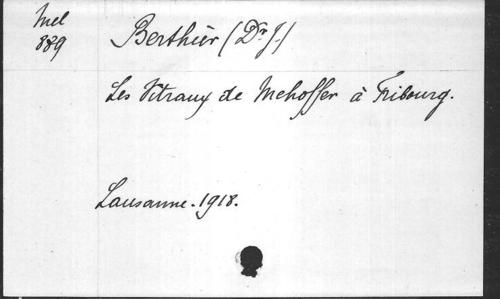 Mel
889
Berthier (Dr J.)
Les Vitraux de Mehoffer à Fribourg.
Lausanne. 1918.